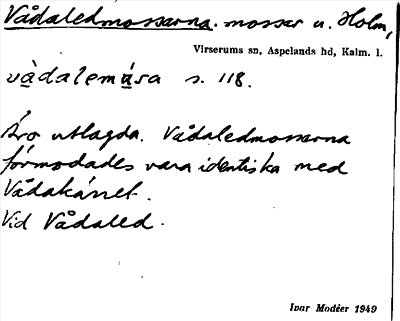 Vådaledmossarna. mossar u. Holm,
Virserums sn, Aspelands hd, Kalm. l.
vàdalemɷ́sa s. 118.
Äro utlagda. Vådaledmossarna
förmodades vara identiska med
Vådakärret.
Vid Vådaled.
Ivar Modéer 1949